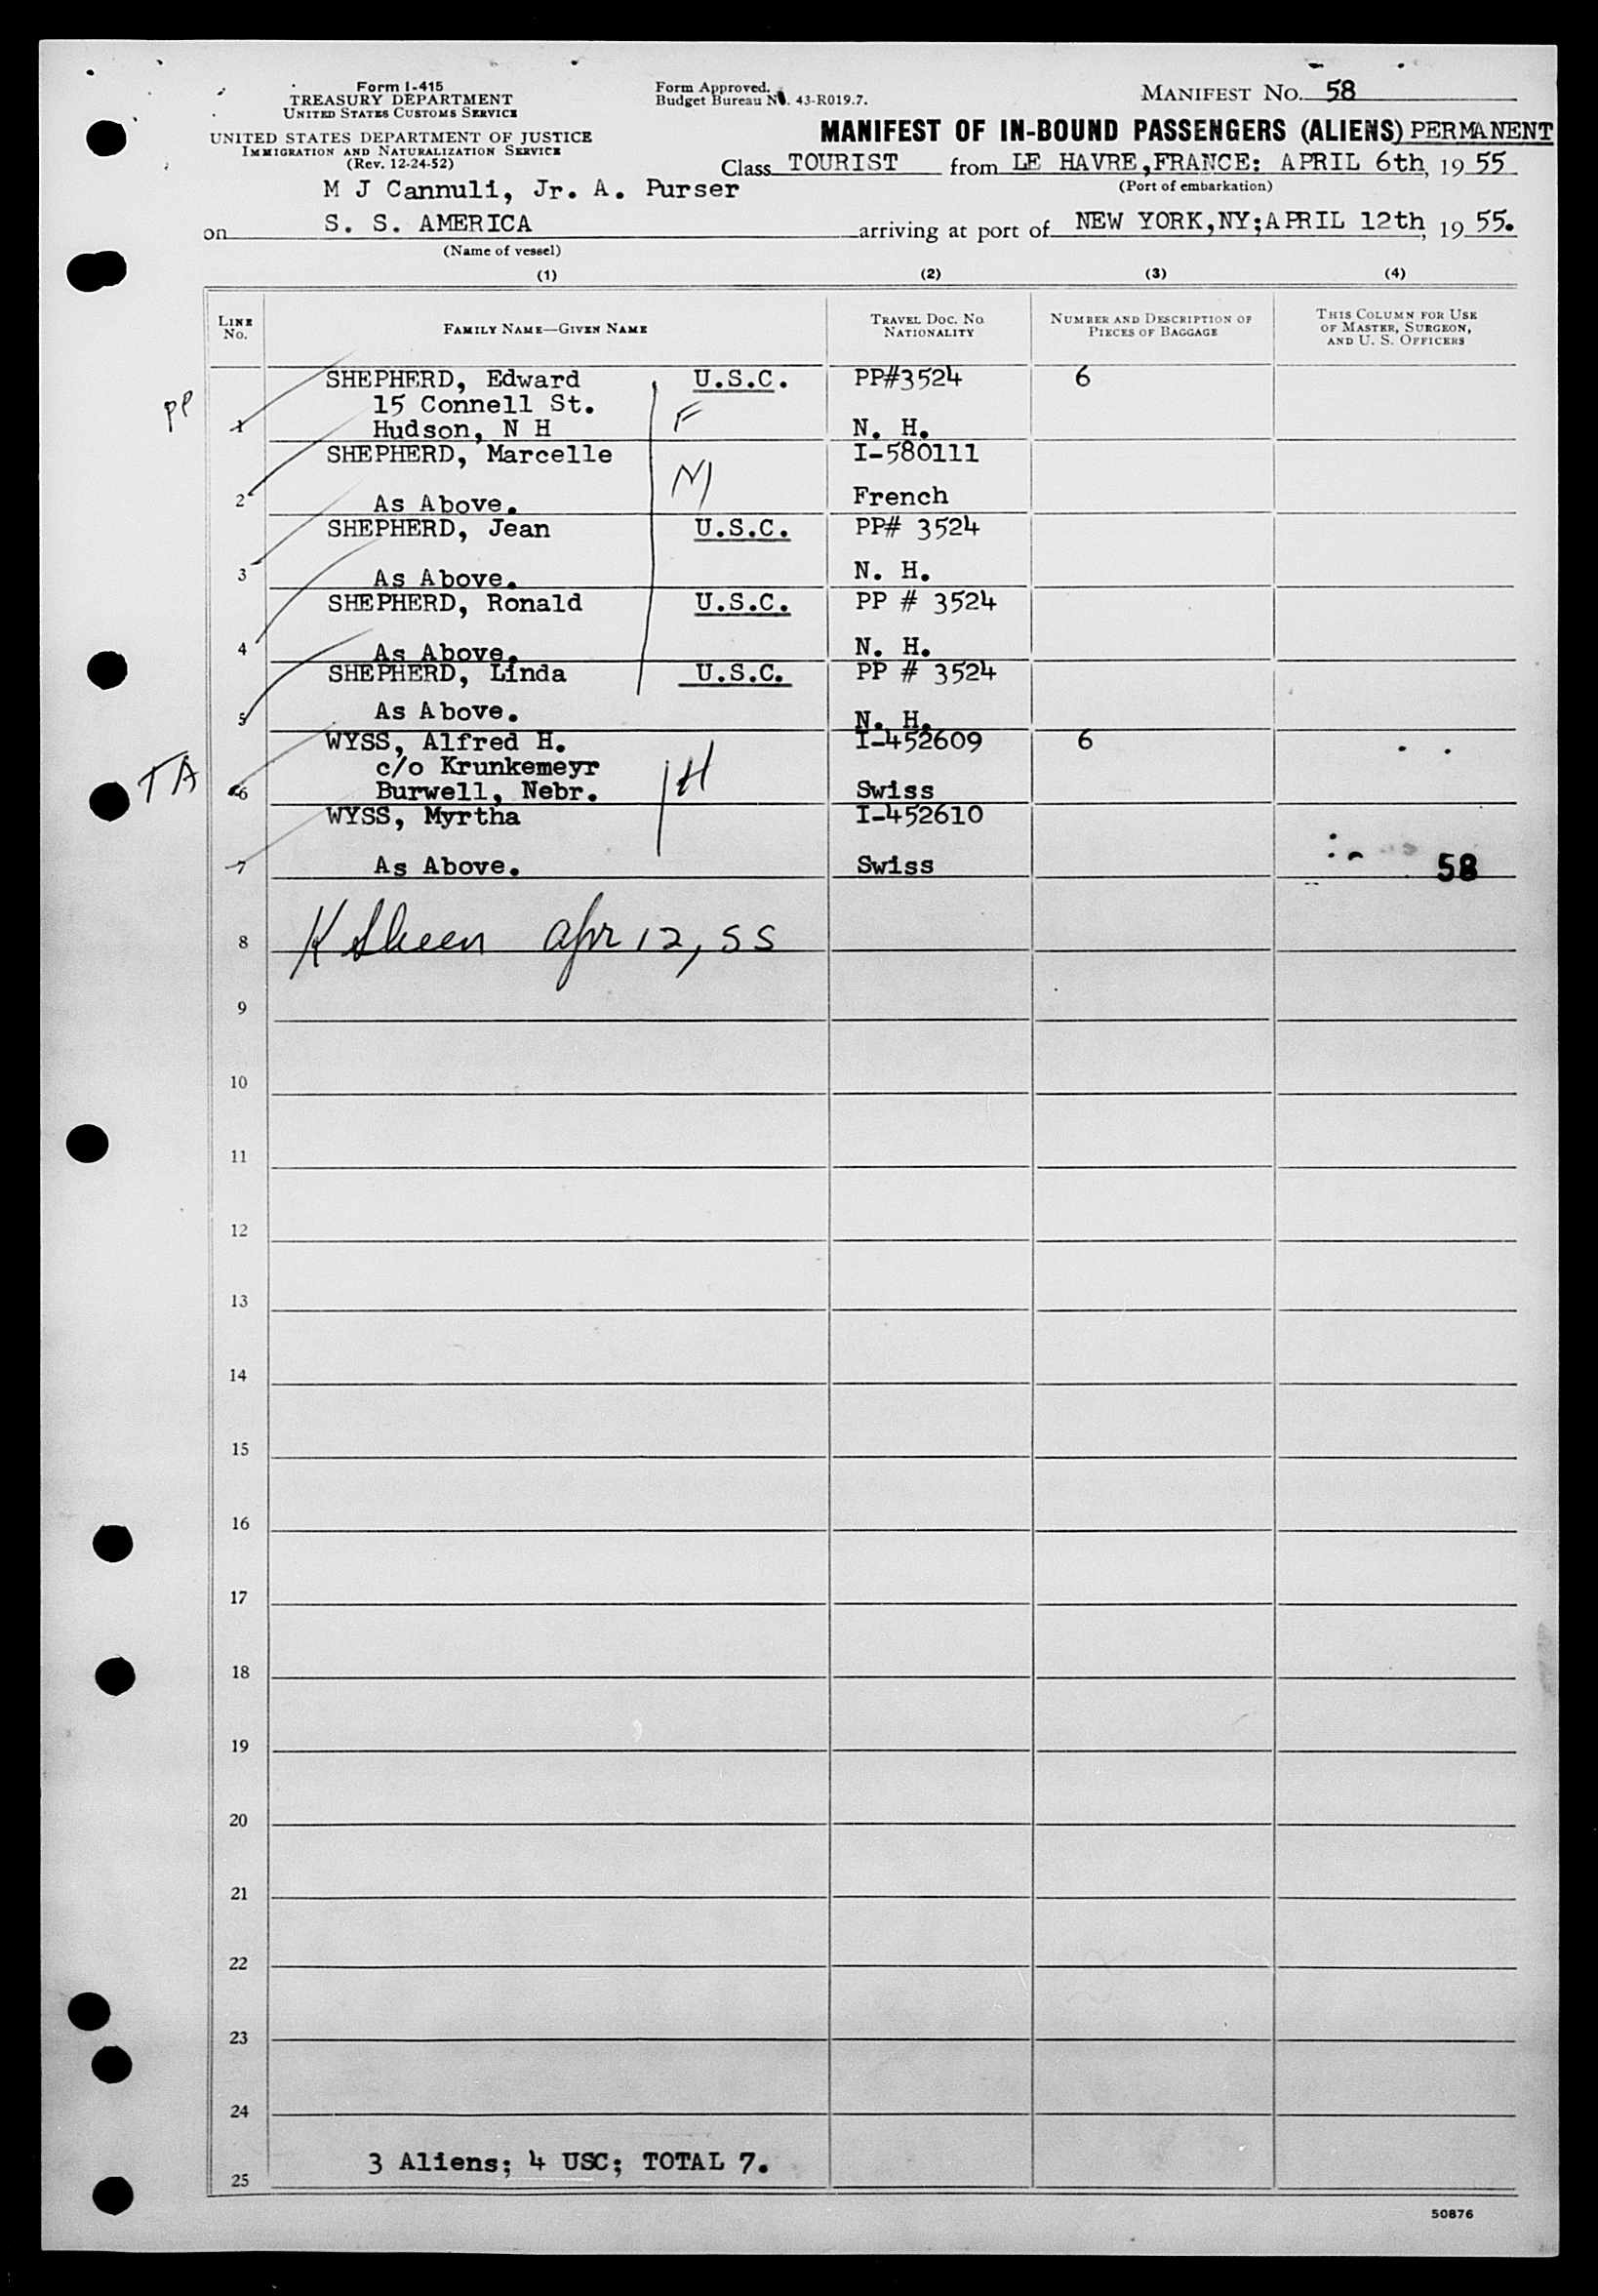 Form I-415
TREASURY DEPARTMENT
UNITED STATES CUSTOMS SERVICE
UNITED STATES DEPARTMENT OF JUSTICE
IMMIGRATION AND NATURALIZATION SERVICE
(Rev. 12-24-52)
Form Approved.
Budget Bureau No. 43-R019.7.
MANIFEST NO. 58
MANIFEST OF IN-BOUND PASSENGERS (ALIENS) PERMANENT
Class TOURIST from LE HAVRE,FRANCE: APRIL 6th, 19 55
(Port of embarkation)
M J Cannuli, Jr. A. Purser
on S. S. AMERICA arriving at port of NEW YORK,NY;APRIL 12th, 19 55.
(Name of vessel)
(1) (2) (3) (4)
LINE No. FAMILY NAME—GIVEN NAME TRAVEL DOC. NO. NATIONALITY NUMBER AND DESCRIPTION OF PIECES OF BAGGAGE THIS COLUMN FOR USE OF MASTER, SURGEON, AND U. S. OFFICERS
SHEPHERD, Edward U.S.C. PP#3524 6
pl 15 Connell St. F
1 Hudson, N H N. H.
SHEPHERD, Marcelle I-580111
2 As Above. French
SHEPHERD, Jean U.S.C. PP# 3524
3 As Above. N. H.
SHEPHERD, Ronald U.S.C. PP # 3524
4 As Above. N. H.
SHEPHERD, Linda U.S.C. PP # 3524
5 As Above. N. H.
WYSS, Alfred H. I-452609 6
TA c/o Krunkemeyr H
6 Burwell, Nebr. Swiss
WYSS, Myrtha I-452610
7 As Above. Swiss 58
8 K Sheen Apr 12, 55
9
10
11
12
13
14
15
16
17
18
19
20
21
22
23
24
25 3 Aliens; 4 USC; TOTAL 7.
50876